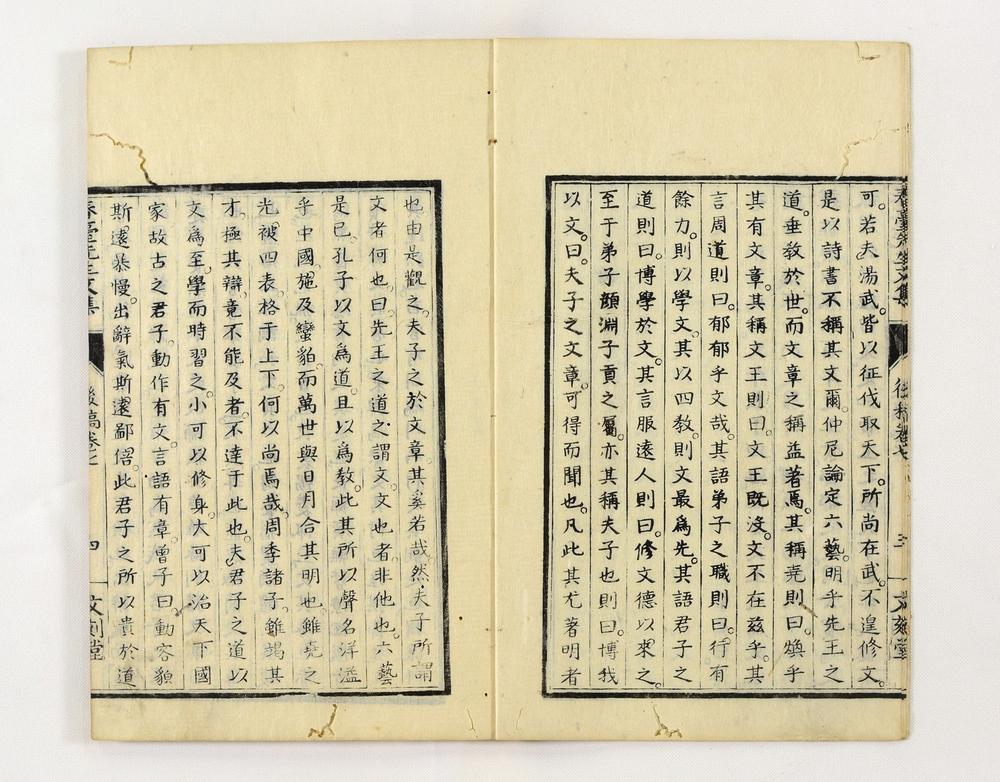 春臺先生文集 後稿卷七 三 文刻堂
可。若夫湯武。皆以征伐取天下。所尚在武。不遑修文。
是以詩書不稱其文爾。仲尼論定六藝。明乎先王之
道。垂敎於世。而文章之稱益著焉。其稱堯則曰。煥乎
其有文章。其稱文王則曰。文王旣沒。文不在茲乎。其
言周道則曰。郁郁乎文哉。其語弟子之職則曰。行有
餘力。則以學文。其以四敎。則文最爲先。其語君子之
道則曰。博學於文。其言服遠人則曰。修文德以來之。
至于弟子顏淵子貢之屬。亦其稱夫子也則曰。博我
以文。曰。夫子之文章。可得而聞也。凡此其尤著明者
也。由是觀之。夫子之於文章。其奚若哉。然夫子所謂
文者何也。曰。先王之道之謂文。文也者。非他也。六藝
是已。孔子以文爲道。且以爲敎。此其所以聲名洋溢
乎中國。施及蠻貊。而萬世與日月合其明也。雖堯之
光被四表。格于上下。何以尚焉哉。周季諸子。雖竭其
才。極其辯。竟不能及者。不達于此也。夫君子之道。以
文爲至。學而時習之。小可以修身。大可以治天下國
家。故古之君子。動作有文。言語有章。曾子曰。動容貌
斯遠暴慢。出辭氣斯遠鄙倍。此君子之所以貴於道
春臺先生文集 後稿卷七 四 文刻堂